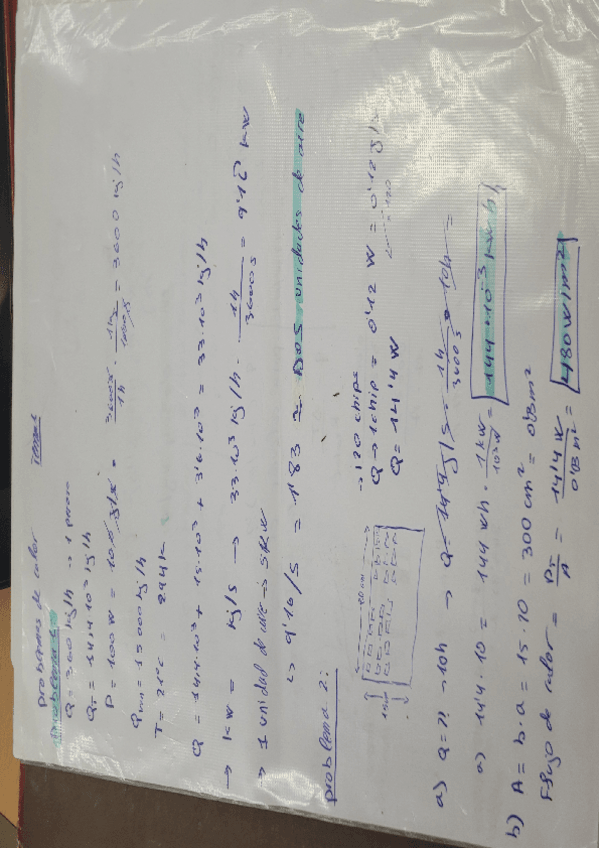 problemas de calor Tema 1
Problema 1:
Q = 360 kJ/h → 1 persona
QT = 14,4·10³ kJ/h
P = 100W = 10 · 3600s/1h · 1kJ/1000J = 3600 kJ/h
Q = 15000 kJ/h
T = 21°C = 294K
Q = 14,4·10³ + 15·10³ + 3'6·10³ = 33·10³ kJ/h
→ kW = kJ/s → 33·10³ kJ/h · 1h/3600s = 9'16 kW
→ 1 unidad de aire → 5kW
↳ 9'16/5 = 1'83 ≈ DOS unidades de aire
problema 2:
→ 120 chips
Q → 1chip = 0'12 W = 0'12 J/s
Q = 14'4 W
20cm
a) Q = ?? → 10h → Q = 14'4 J/s · 1h/3600s · 10h =
a) 14'4·10 = 144 Wh · 1kW/10³W = 144·10⁻³ kWh
b) A = b·a = 15·20 = 300 cm² = 0'03m²
Flujo de calor = PT/A = 14'4W/0'03m² = 480W/m²